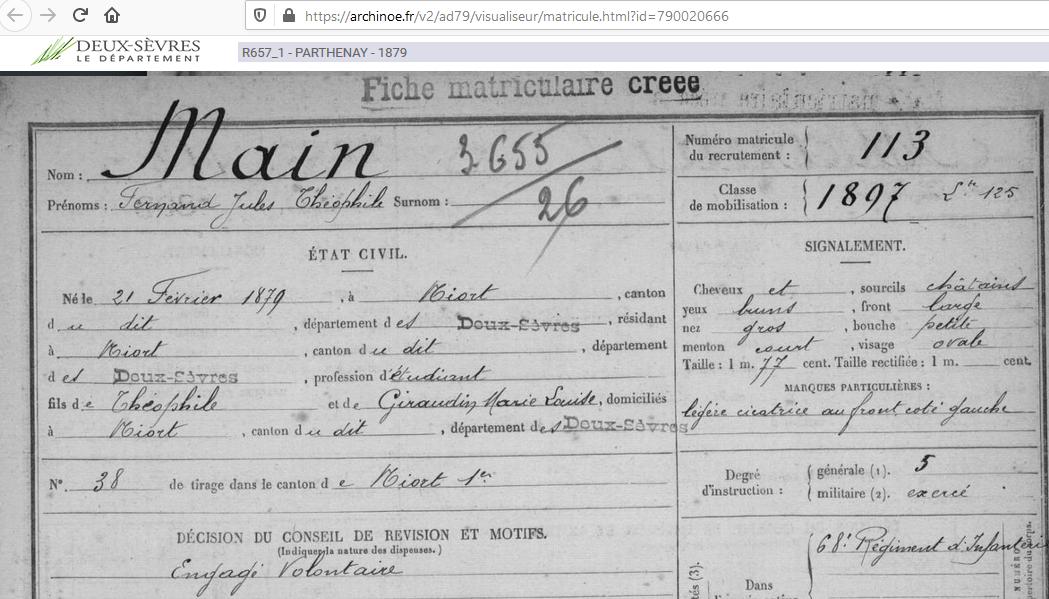 https://archinoe.fr/v2/ad79/visualiseur/matricule.html?id=790020666
DEUX-SÈVRES
LE DÉPARTEMENT
R657_1 - PARTHENAY - 1879
Fiche matriculaire créée
Nom : Main
3655/26
Prénoms : Fernand Jules Théophile Surnom :
Numéro matricule
du recrutement : 113
Classe
de mobilisation : 1897
125
ÉTAT CIVIL.
Né le 21 Février 1879, à Niort, canton
du dit, département des Deux-Sèvres, résidant
à Niort, canton du dit, département
des Deux-Sèvres, profession d'étudiant
fils de Théophile et de Giraudin Marie Louise, domiciliés
à Niort, canton du dit, département des Deux-Sèvres
N° 38 de tirage dans le canton de Niort 1er
DÉCISION DU CONSEIL DE REVISION ET MOTIFS.
(Indiquer la nature des dispenses.)
Engagé Volontaire
SIGNALEMENT.
Cheveux et, sourcils châtains
yeux bruns, front large
nez gros, bouche petite
menton court, visage ovale
Taille : 1 m. 77 cent. Taille rectifiée : 1 m. cent.
MARQUES PARTICULIÈRES :
légère cicatrice au front coté gauche
Degré
d'instruction :
générale (1). 5
militaire (2). exercé
68e Régiment d'Infanterie
Dans